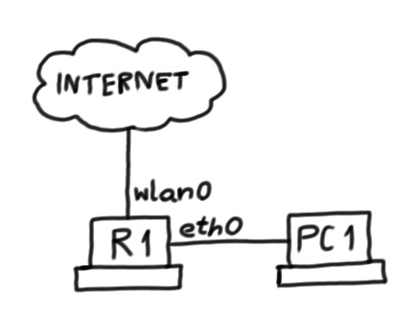 INTERNET
wlan0
eth0
R1
PC1